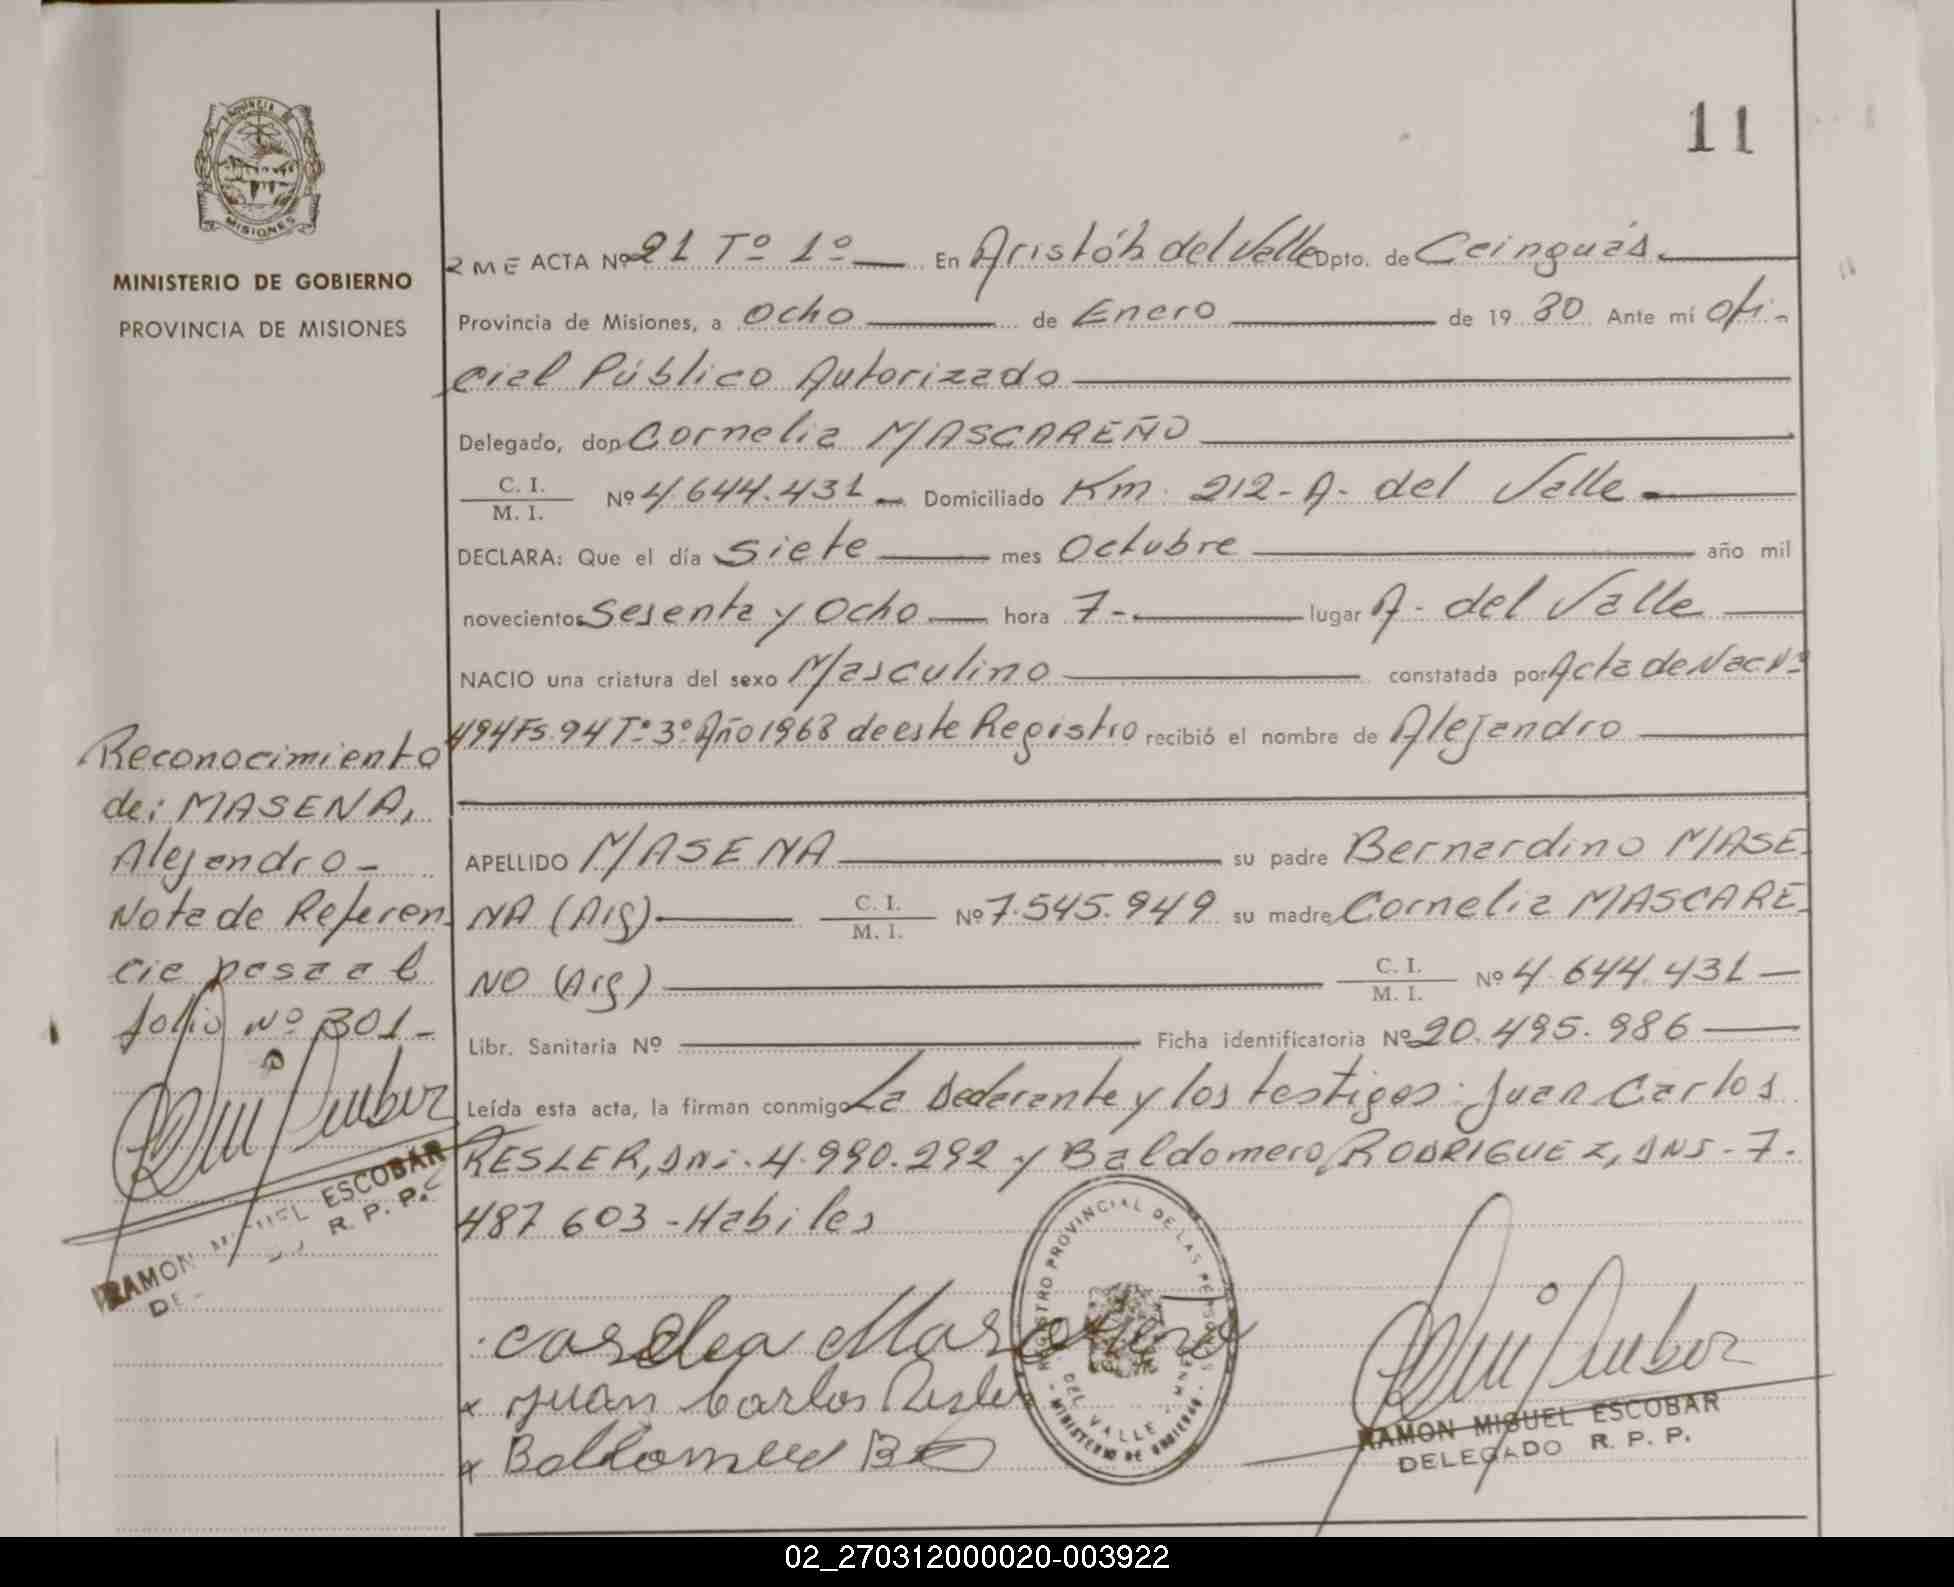 PROVINCIA DE
MISIONES
MINISTERIO DE GOBIERNO
PROVINCIA DE MISIONES
11
2ME ACTA Nº 21 Tº 1º En Aristób del Valle Dpto. de Caingúas.
Provincia de Misiones, a Ocho de Enero de 19 80 Ante mí Ofi-
cial Público Autorizado
Delegado, don Cornelia MASCAREÑO
C. I.
M. I. Nº 4.644.431 Domiciliado Km. 212-A- del Valle
DECLARA: Que el día Siete mes Octubre año mil
novecientos Sesenta y Ocho hora 7- lugar A- del Valle
NACIO una criatura del sexo Masculino constatada por Acta de Nac Nº
494 Fs. 94 Tº 3º Año 1968 de este Registro recibió el nombre de Alejandro
APELLIDO MASENA su padre Bernardino MASE-
NA (Arg) C. I.
M. I. Nº 7.545.949 su madre Cornelia MASCARE-
NO (Arg) C. I.
M. I. Nº 4.644.431
Libr. Sanitaria Nº Ficha identificatoria Nº 20.495.986
Leída esta acta, la firman conmigo La Declarante y los testigos: Juan Carlos
RESLER, DNI. 4.990.292 y Baldomero RODRIGUEZ, DNI-7.
487 603-Habiles
Reconocimiento
de: MASENA,
Alejandro-
Nota de Referen-
cia pasa al
folio Nº 301-
RAMON MIGUEL ESCOBAR
R. P. P.
Juan Carlos Resler
REGISTRO PROVINCIAL DE LAS PERSONAS
DEL VALLE - MNES
MINISTERIO DE GOBIERNO
RAMON MIGUEL ESCOBAR
DELEGADO R. P. P.
02_270312000020-003922